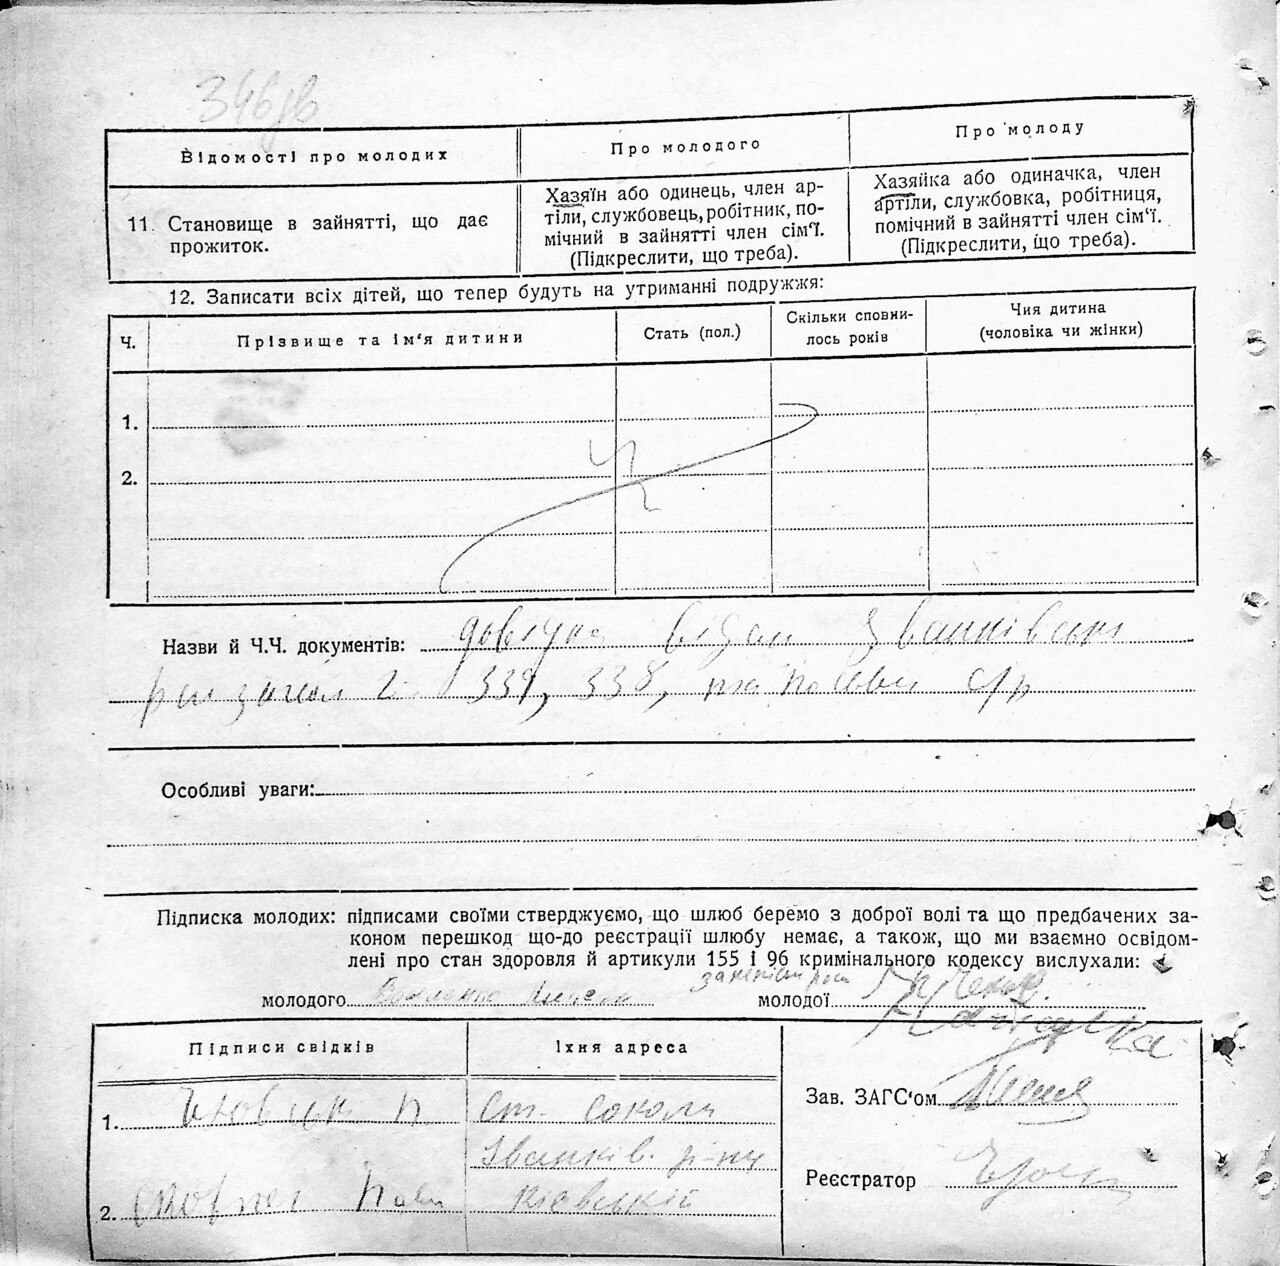 346 зв
Відомості про молодих
Про молодого
Про молоду
11. Становище в зайнятті, що дає
прожиток.
Хазяїн або одинець, член ар-
тіли, службовець, робітник, по-
мічний в зайнятті член сім'ї.
(Підкреслити, що треба).
Хазяйка або одиначка, член
артіли, службовка, робітниця,
помічний в зайнятті член сім'ї.
(Підкреслити, що треба).
12. Записати всіх дітей, що тепер будуть на утриманні подружжя:
Ч.
Прізвище та ім'я дитини
Стать (пол.)
Скільки сповни-
лось років
Чия дитина
(чоловіка чи жінки)
1.
2.
Назви й Ч.Ч. документів: довідка видан Іванківськ
339, 338,
Особливі уваги:
Підписка молодих: підписами своїми стверджуємо, що шлюб беремо з доброї волі та що предбачених за-
коном перешкод що-до реєстрації шлюбу немає, а також, що ми взаємно освідом-
лені про стан здоровля й артикули 155 і 96 кримінального кодексу вислухали:
молодого
молодої
Підписи свідків
Їхня адреса
1.
ст. Соколи
Іванків. р-ну
2.
Київській
Зав. ЗАГС'ом
Реєстратор